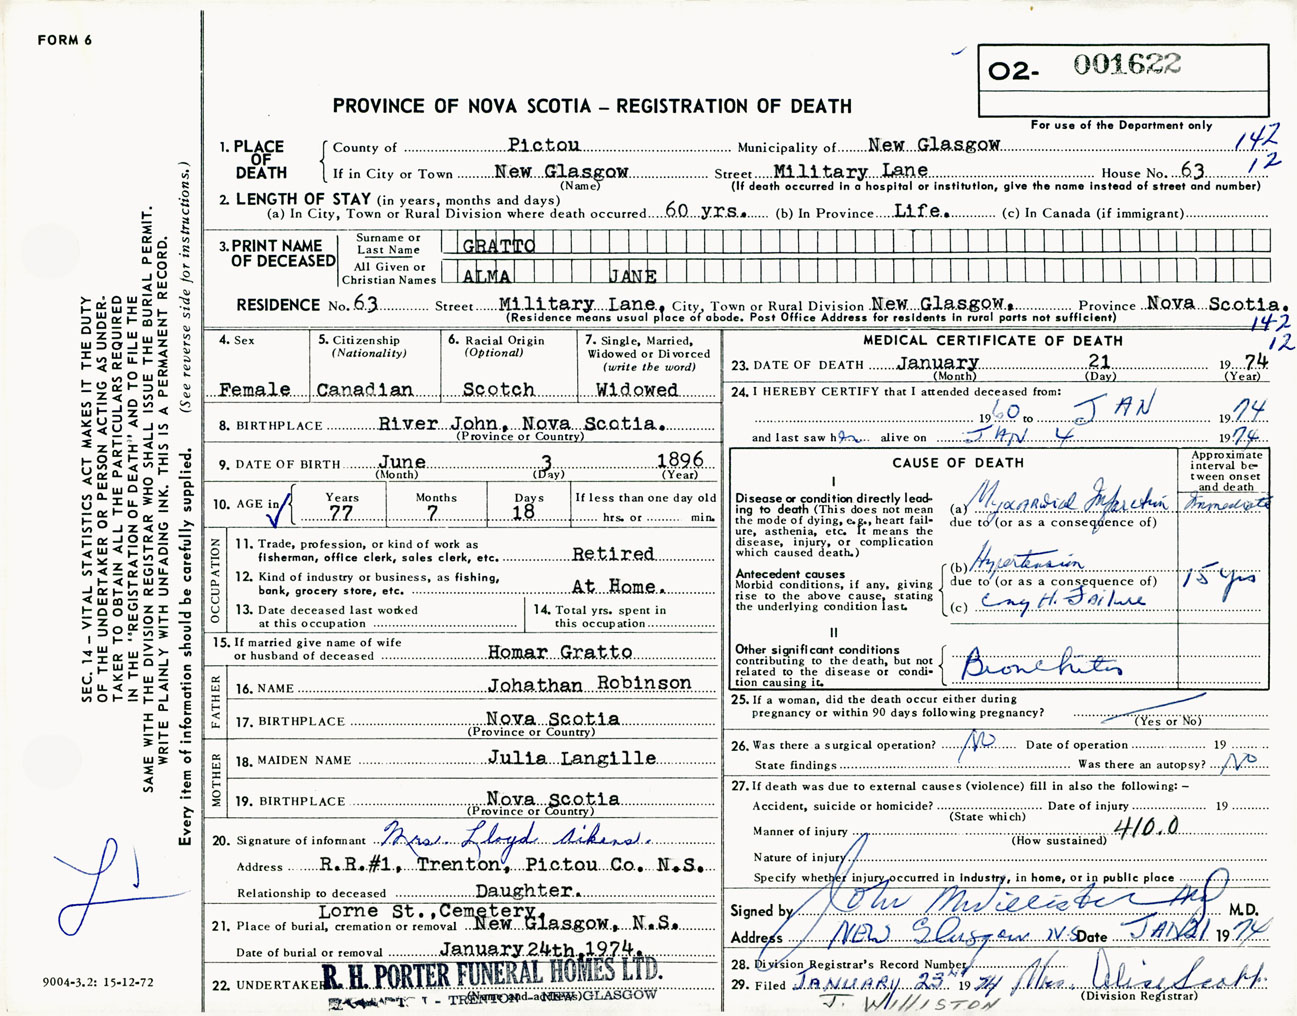 FORM 6
O2- 001622
PROVINCE OF NOVA SCOTIA – REGISTRATION OF DEATH
For use of the Department only
142
12
1. PLACE OF DEATH
County of Pictou Municipality of New Glasgow
If in City or Town New Glasgow Street Military Lane House No. 63
(Name) (If death occurred in a hospital or institution, give the name instead of street and number)
2. LENGTH OF STAY (in years, months and days)
(a) In City, Town or Rural Division where death occurred 60 yrs. (b) In Province Life. (c) In Canada (if immigrant)
3. PRINT NAME OF DECEASED
Surname or Last Name GRATTO
All Given or Christian Names ALMA JANE
RESIDENCE No. 63 Street Military Lane, City, Town or Rural Division New Glasgow, Province Nova Scotia.
(Residence means usual place of abode. Post Office Address for residents in rural parts not sufficient)
142
12
4. Sex
Female
5. Citizenship
(Nationality)
Canadian
6. Racial Origin
(Optional)
Scotch
7. Single, Married,
Widowed or Divorced
(write the word)
Widowed
8. BIRTHPLACE River John, Nova Scotia.
(Province or Country)
9. DATE OF BIRTH June 3 1896
(Month) (Day) (Year)
10. AGE in
Years Months Days If less than one day old
77 7 18 hrs. or min.
OCCUPATION
11. Trade, profession, or kind of work as
fisherman, office clerk, sales clerk, etc. Retired
12. Kind of industry or business, as fishing,
bank, grocery store, etc. At Home.
13. Date deceased last worked
at this occupation
14. Total yrs. spent in
this occupation
15. If married give name of wife
or husband of deceased Homar Gratto
FATHER
16. NAME Johathan Robinson
17. BIRTHPLACE Nova Scotia
(Province or Country)
MOTHER
18. MAIDEN NAME Julia Langille
19. BIRTHPLACE Nova Scotia
(Province or Country)
20. Signature of informant Mrs. Lloyd Aikens.
Address R.R.#1, Trenton, Pictou Co. N.S.
Relationship to deceased Daughter.
Lorne St., Cemetery,
21. Place of burial, cremation or removal New Glasgow, N.S.
Date of burial or removal January 24th, 1974.
22. UNDERTAKER R. H. PORTER FUNERAL HOMES LTD.
(Name and address)
TRENTON - NEW GLASGOW
MEDICAL CERTIFICATE OF DEATH
23. DATE OF DEATH January 21 1974
(Month) (Day) (Year)
24. I HEREBY CERTIFY that I attended deceased from:
1960 to JAN 1974
and last saw her alive on JAN 4 1974
CAUSE OF DEATH
Approximate interval between onset and death
I
Disease or condition directly lead-
ing to death (This does not mean
the mode of dying, e.g., heart fail-
ure, asthenia, etc. It means the
disease, injury, or complication
which caused death.)
(a) Myocardial Infarction Immediate
due to (or as a consequence of)
Antecedent causes
Morbid conditions, if any, giving
rise to the above cause, stating
the underlying condition last.
(b) Hypertension
due to (or as a consequence of) 15 yrs
(c) Cong H. Failure
II
Other significant conditions
contributing to the death, but not
related to the disease or condi-
tion causing it.
Bronchitis
25. If a woman, did the death occur either during
pregnancy or within 90 days following pregnancy?
(Yes or No)
26. Was there a surgical operation? NO Date of operation 19
State findings Was there an autopsy? NO
27. If death was due to external causes (violence) fill in also the following: –
Accident, suicide or homicide? Date of injury 19
(State which)
Manner of injury 410.0
(How sustained)
Nature of injury
Specify whether injury occurred in industry, in home, or in public place
Signed by John McWilliston MD M.D.
Address NEW Glasgow N.S. Date JAN 21 1974
28. Division Registrar's Record Number
29. Filed JANUARY 23rd 1974 Mrs. Alise Scott.
(Division Registrar)
J. WILLISTON
SEC. 14 – VITAL STATISTICS ACT MAKES IT THE DUTY
OF THE UNDERTAKER OR PERSON ACTING AS UNDER-
TAKER TO OBTAIN ALL THE PARTICULARS REQUIRED
IN THE "REGISTRATION OF DEATH" AND TO FILE THE
SAME WITH THE DIVISION REGISTRAR WHO SHALL ISSUE THE BURIAL PERMIT.
WRITE PLAINLY WITH UNFADING INK. THIS IS A PERMANENT RECORD.
Every item of information should be carefully supplied. (See reverse side for instructions.)
9004-3.2: 15-12-72